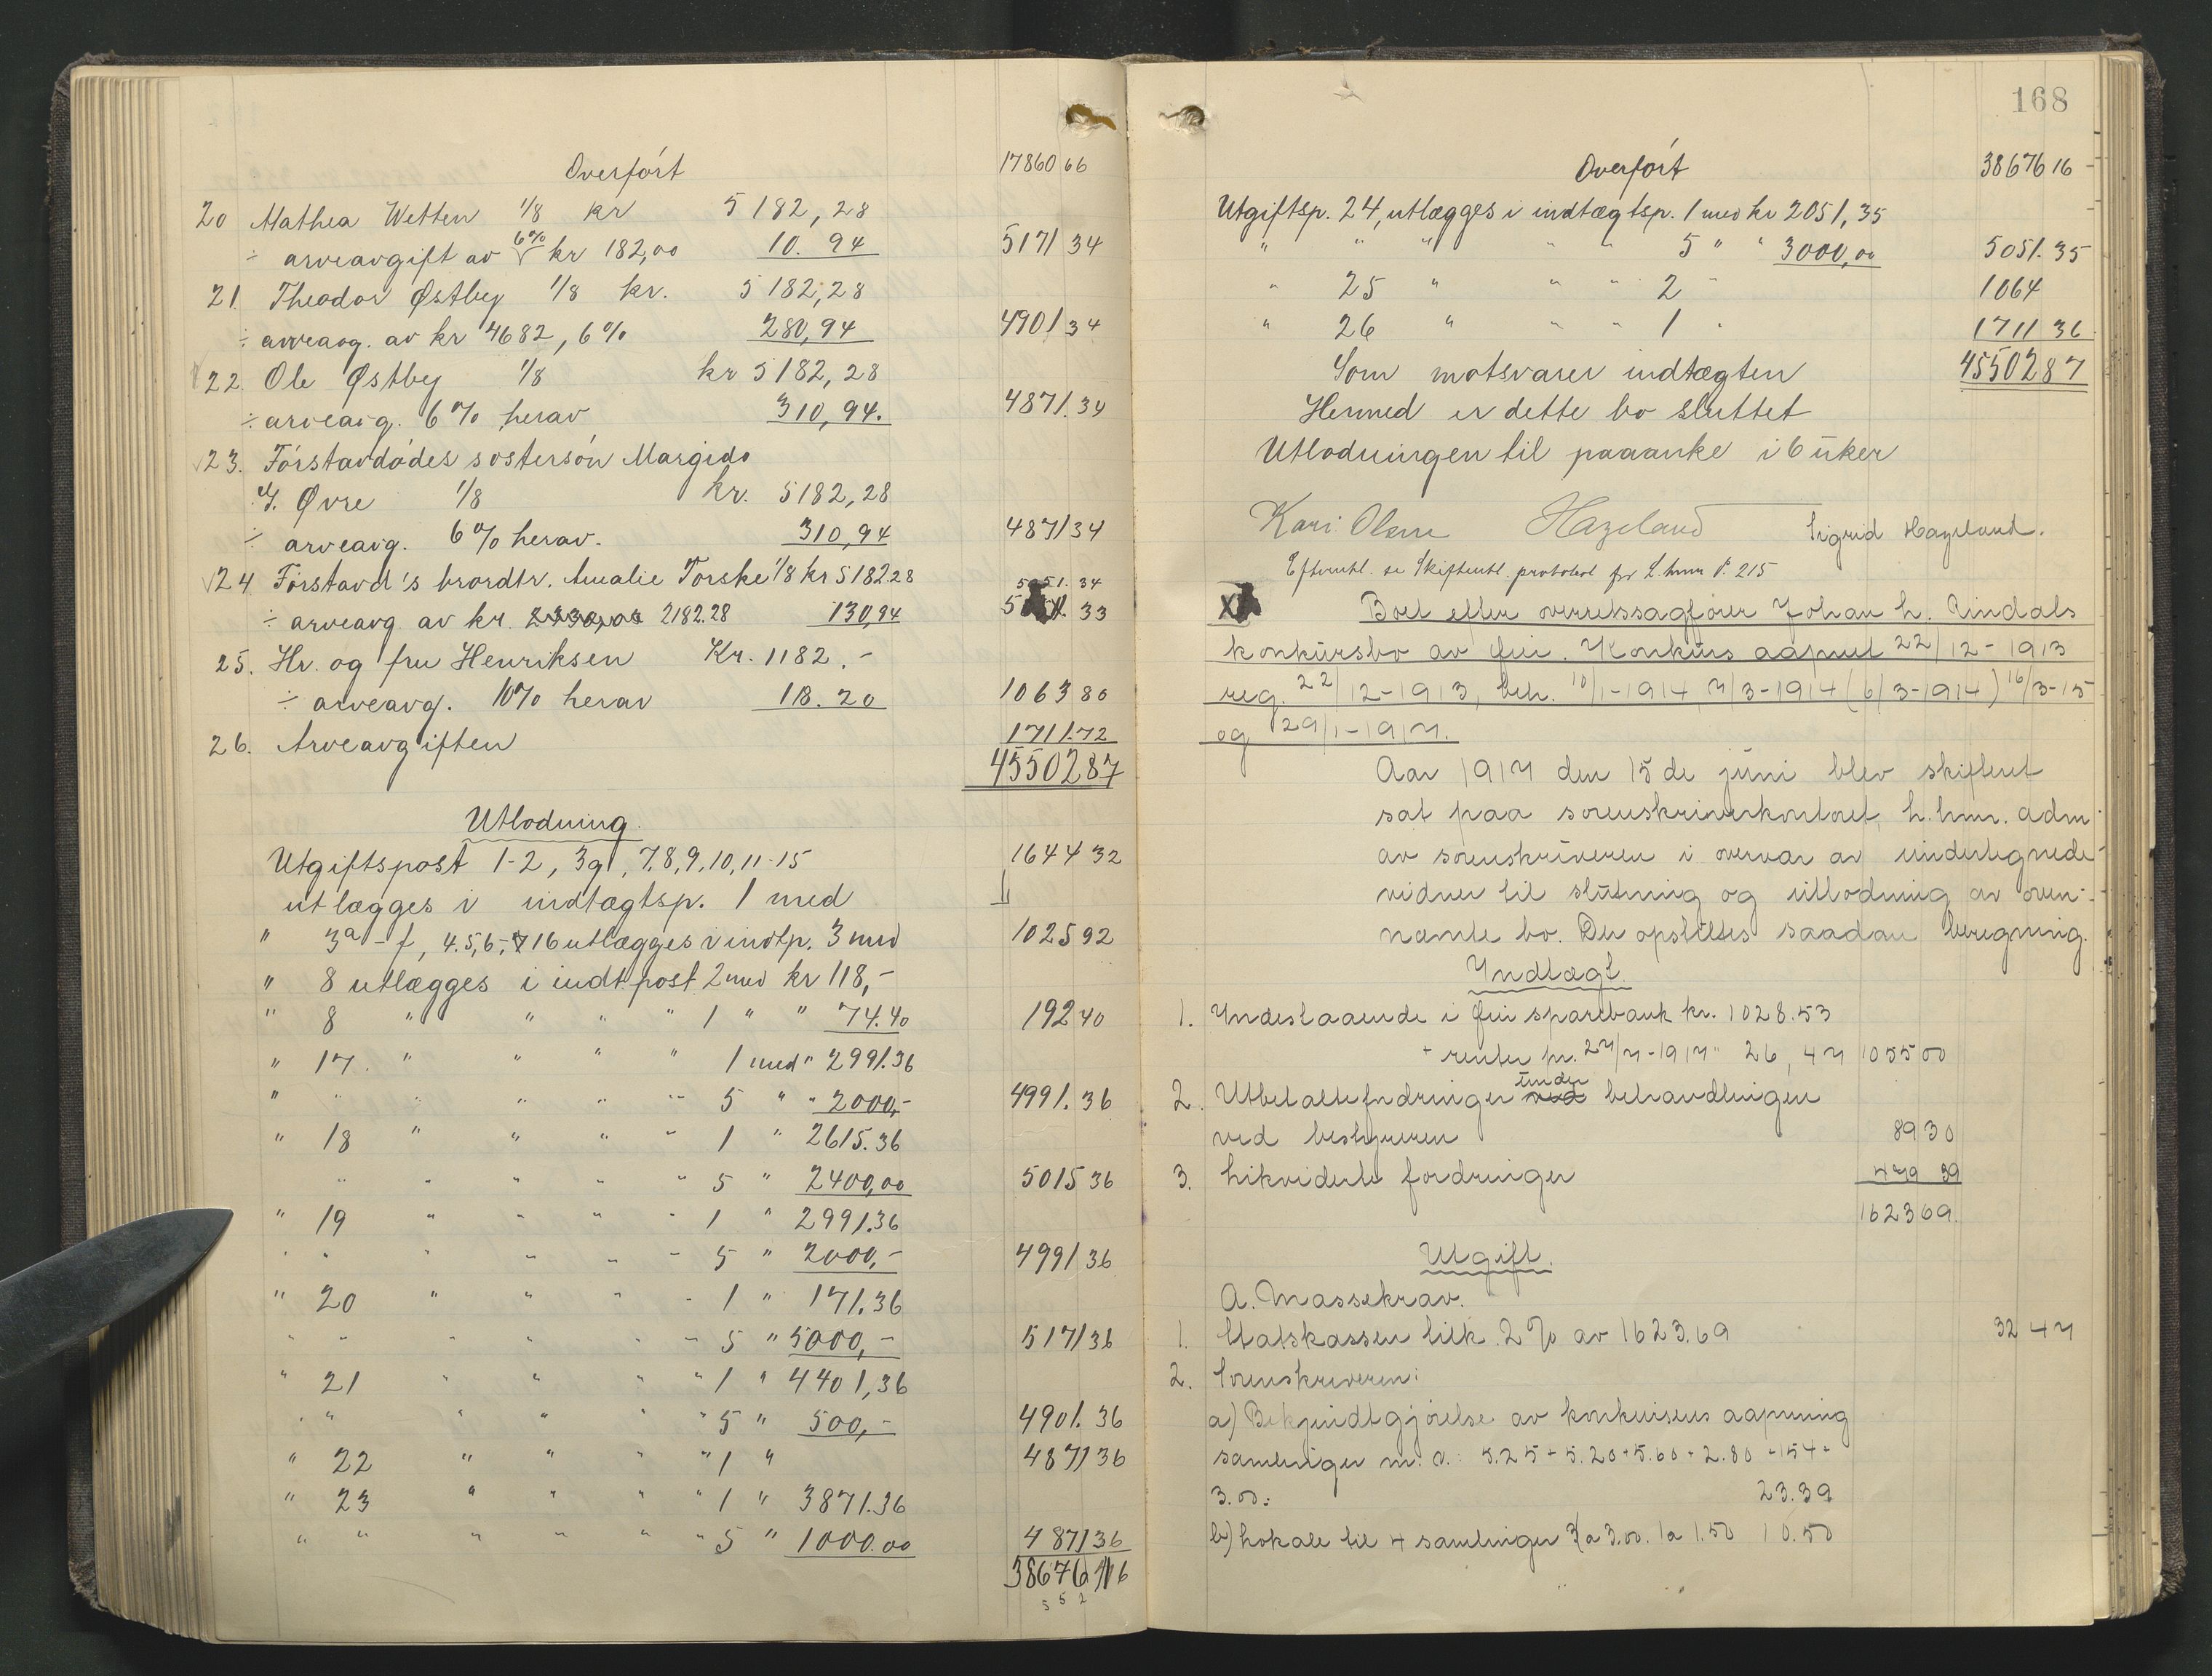 Overført 17860 66
20 Mathea Wetten 1/8 kr 5182,28
÷ arveavgift av 6% kr 182,00 10. 94 5171 34
21. Theodor Østby 1/8 kr. 5182,28
÷ arveavg. av kr 4682, 6% 280,94 4901 34
22. Ole Østby 1/8 kr 5182,28
÷ arveavg. 6% herav 310,94. 4871. 34
23. Førstavdødes søstersøn Margido
Øvre 1/8 kr. 5182,28
÷ arveavg. 6% herav. 310,94 4871 34
24 Førstavd's brordtr. Amalie Torske 1/8 kr 5182 28 5051. 34
÷ arveavg av kr. 2182.28 130,94 33
25. Hr. og fru Henriksen Kr. 1182.-
÷ arveavg. 10% herav 118. 20 1063 80
26. Arveavgiften 1711.72
45502 87
Utlodning
Utgiftspost 1-2, 3g, 7,8,9,10,11-15 1644 32
utlægges i indtægtsp. 1 med
" 3a - f, 4.5,6,- 16 utlægges i indtp. 3 med 1025 92
" 8 utlægges i indt.post 2 med kr 118,-
" 8 " " " " 1 " " 74.40 192 40
" 17. " " " " 1 med " 2991.36
" " " " " " 5 " " 2000,- 4991. 36
" 18 " " " " 1 " 2615.36
" " " " " 5 " 2400,00 5015 36
" 19 " " " " 1 " 2991.36
" " " " " " 5 " 2000,- 4991 36
" 20 " " " " 1 " 171.36
" " " " " " 5 " 5000,- 5171 36
" 21 " " " " 1 " 4401,36
" " " " " " 5 " 500,- 4901. 36
" 22 " " " " 1 " 4871 36
" 23 " " " " 1 " 3871.36
" " " " " " 5 " 1000.00 4871 36
38676 16
5 5 2
168
Overført 38676 16
Utgiftsp. 24, utlægges i indtægtsp. 1 med kr 2051,35
" " " " " 5 " " 3000,00 5051. 35
" 25 " " " 2 " 1064
" 26 " " " 1 " 1711 36
Som motsvarer indtægten 45502 87
Hermed er dette bo sluttet
Utlodningen til paaanke i 6 uker
Kari Olsen Hazeland Sigrid Hazeland.
Efterutl. se Skifteutl. protokol for L.hmr P. 215
Boet efter overretssagfører Johan L. Rindals
konkursbo av Lier. Konkurs aapnet 22/12-1913
reg. 22/12-1913, beh. 10/1-1914 7/3-1914 (6/3-1914) 16/3-15
og 29/1-1917.
Aar 1917 den 15de juni blev skifteret
sat paa sorenskriverkontoret, L.hmr. adm.
av sorenskriveren i overvær av undertegnede
vidner til slutning og utlodning av oven-
nævnte bo. Der opstilles saadan beregning.
Indtægt
1. Indestaaende i sparebank kr. 1028.53
+ renter pr. 27/7-1917 " 26,47 1055 00
2. Utbetalte fordringer under behandlingen
ved bestyreren 89 30
3. Likviderte fordringer 479 39
1623 69.
Utgift.
A. Massekrav.
1. Statskassen tilk. 2% av 1623.69 32 47
2. Sorenskriveren:
a) Bekjendtgjørelse av konkursens aapning
samlinger m. v. : 5.25 + 5.20 + 5.60 + 2.80 + 154 +
3.00: 23.39
b) Lokale til 4 samlinger 3 a 3.00. 1 a 1.50 10.50